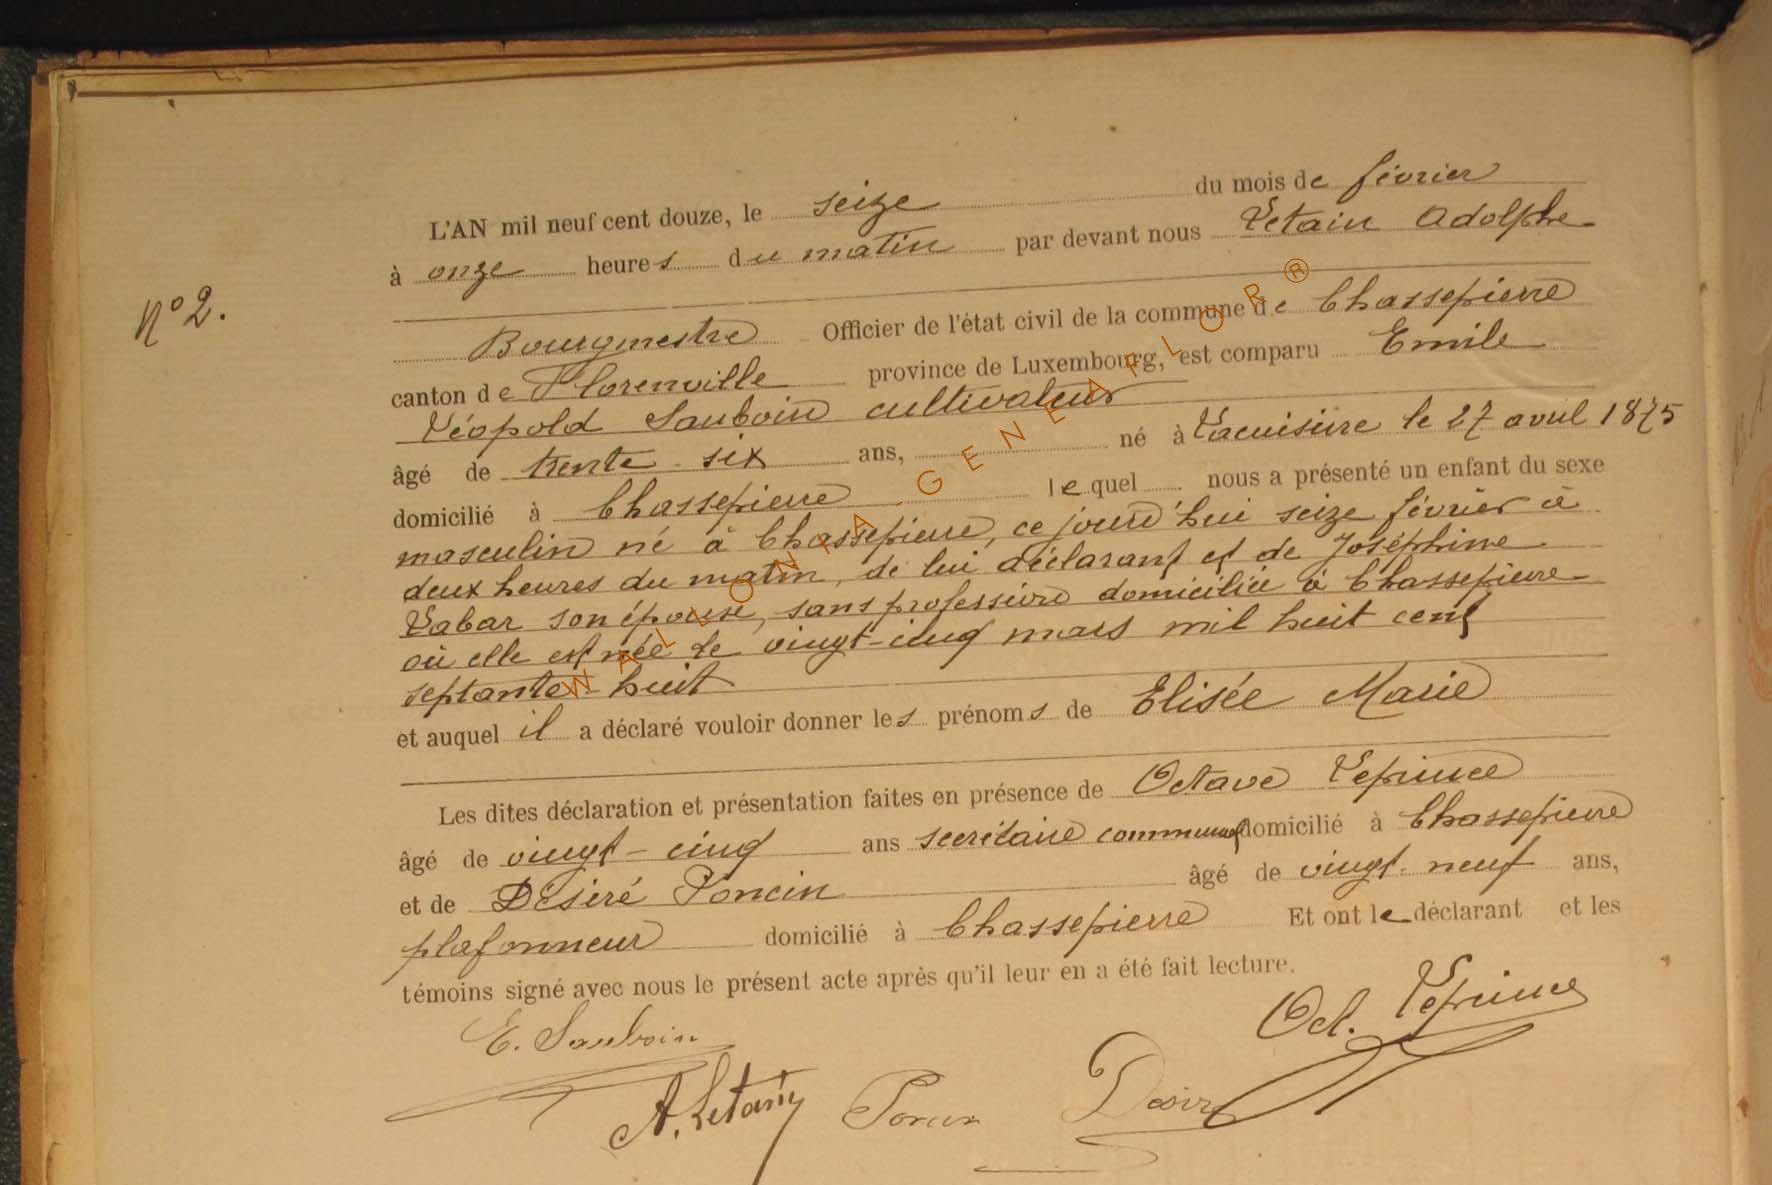 L'AN mil neuf cent douze, le seize du mois de février
à onze heures du matin par devant nous Letain Adolphe
N° 2.
Bourgmestre Officier de l'état civil de la commune de Chassepierre
canton de Florenville province de Luxembourg, est comparu Emile
Léopold Sauboin cultivateur
âgé de trente-six ans, né à Lacuisine le 27 avril 1875
domicilié à Chassepierre lequel nous a présenté un enfant du sexe
masculin né à Chassepierre, ce jourd'hui seize février à
deux heures du matin, de lui déclarant et de Joséphine
Labar son épouse, sans profession domiciliée à Chassepierre
où elle est née le vingt-cinq mars mil huit cent
septante huit
et auquel il a déclaré vouloir donner les prénoms de Elisée Marie
Les dites déclaration et présentation faites en présence de Octave Leprince
âgé de vingt-cinq ans secrétaire communal domicilié à Chassepierre
et de Désiré Poncin âgé de vingt-neuf ans,
plafonneur domicilié à Chassepierre Et ont le déclarant et les
témoins signé avec nous le présent acte après qu'il leur en a été fait lecture.
E. Sauboin Oct. Leprince
A. Letain Poncin Désiré
WALLONIA-GENEAFLOR®